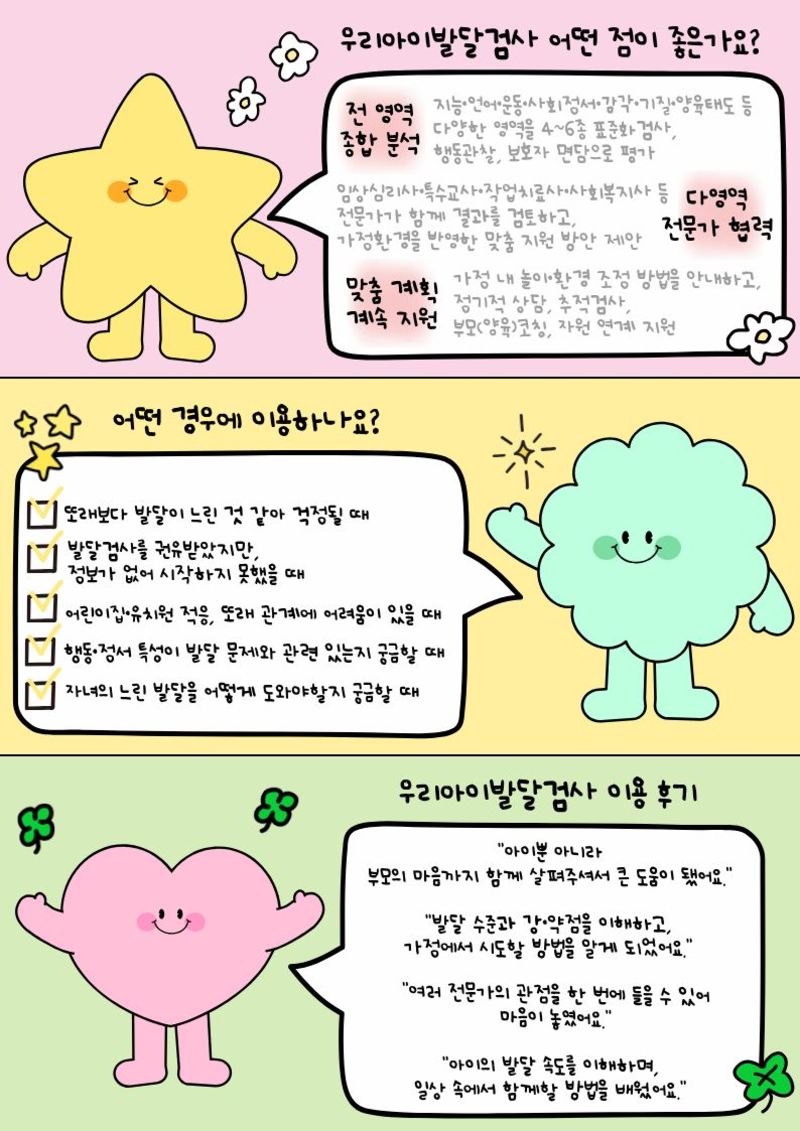 우리아이발달검사 어떤 점이 좋은가요?
전 영역
종합 분석
지능•언어•운동•사회정서•감각•기질•양육태도 등
다양한 영역을 4~6종 표준화검사,
행동관찰, 보호자 면담으로 평가
임상심리사•특수교사•작업치료사•사회복지사 등
전문가가 함께 결과를 검토하고,
가정환경을 반영한 맞춤 지원 방안 제안
다영역
전문가 협력
맞춤 계획
계속 지원
가정 내 놀이•환경 조정 방법을 안내하고,
정기적 상담, 추적검사,
부모(양육)코칭, 자원 연계 지원
어떤 경우에 이용하나요?
또래보다 발달이 느린 것 같아 걱정될 때
발달검사를 권유받았지만,
정보가 없어 시작하지 못했을 때
어린이집•유치원 적응, 또래 관계에 어려움이 있을 때
행동•정서 특성이 발달 문제와 관련 있는지 궁금할 때
자녀의 느린 발달을 어떻게 도와야할지 궁금할 때
우리아이발달검사 이용 후기
"아이뿐 아니라
부모의 마음까지 함께 살펴주셔서 큰 도움이 됐어요."
"발달 수준과 강•약점을 이해하고,
가정에서 시도할 방법을 알게 되었어요."
"여러 전문가의 관점을 한 번에 들을 수 있어
마음이 놓였어요."
"아이의 발달 속도를 이해하며,
일상 속에서 함께할 방법을 배웠어요."